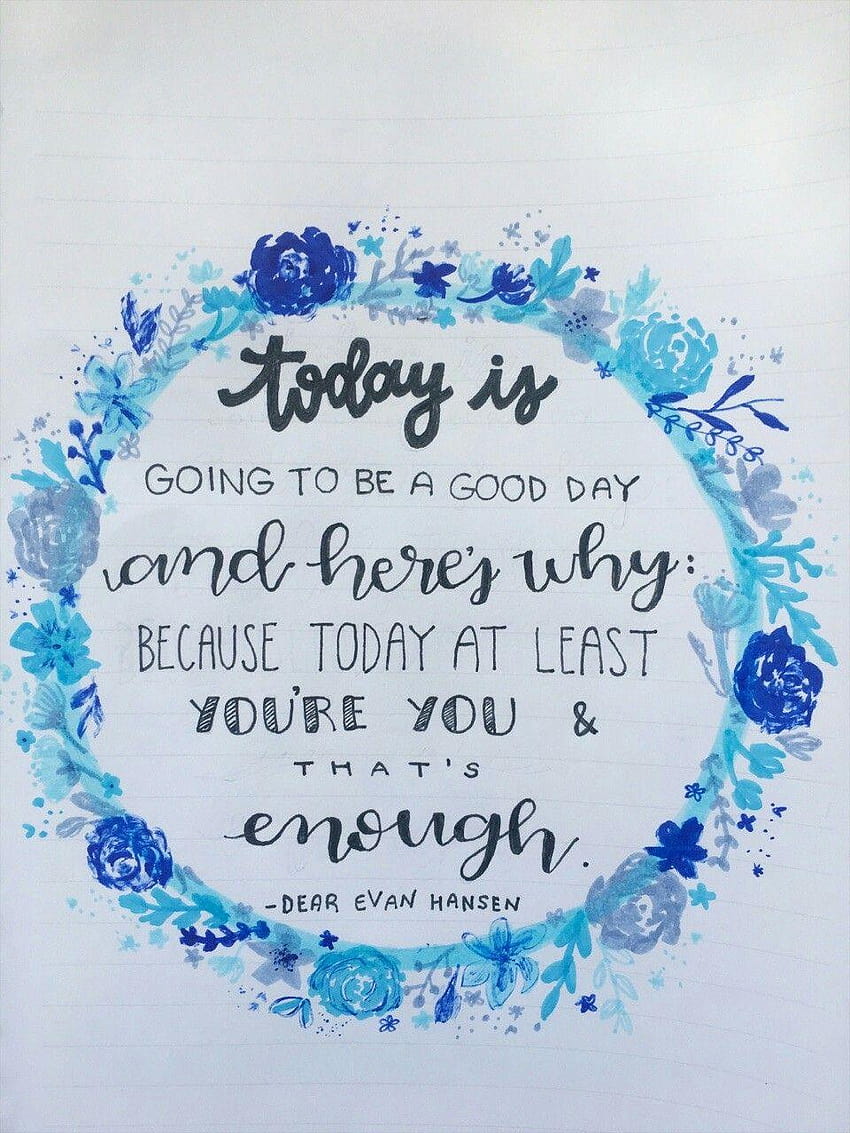 today is
GOING TO BE A GOOD DAY
and here's why:
BECAUSE TODAY AT LEAST
YOU'RE YOU &
THAT'S
enough.
-DEAR EVAN HANSEN